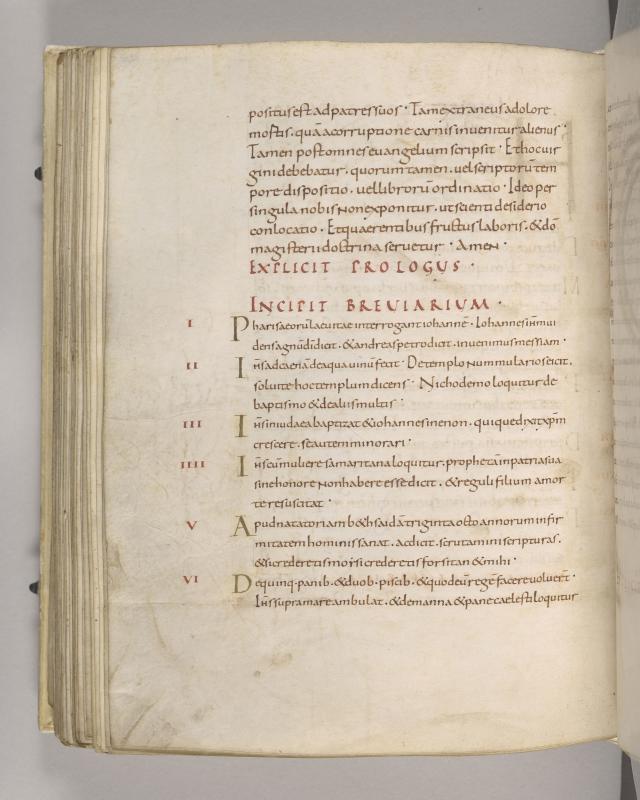 positus est ad patres suos · Tam extraneus a dolore
mortis · quā a corruptione carnis invenitur alienus ·
Tamen post omnes euangelium scripsit · Et hoc uir
gini debebatur · quorum tamen · uel scriptorū tem
pore dispositio · uel librorū ordinatio · Ideo per
singula nobis non exponitur · ut scienti desiderio
conlocatio · Et quaerentibus fructus laboris · & dō
magisterii doctrina seruetur · Amen ·
EXPLICIT PROLOGUS ·
INCIPIT BREUIARIUM ·
I Pharisaeorū leuitae interrogant iohannē · Iohannes ihm ui
dens agnū dī dicit · & andreas petro dicit · inuenimus messiam ·
II Ihs ad caenā de aqua uinū fecit · De templo nummularios eicit ·
soluite hoc templum dicens · Nichodemo loquitur de
baptismo & de aliis multis ·
III Ihs in iudaea baptizat & iohannes in enon · qui quę dixit xpm
crescere · se autem minorari ·
IIII Ihs cū muliere samaritana loquitur · prophetā in patria sua
sine honore non habere esse dicit · & reguli filium a mor
te resuscitat ·
V Apud natatoriam b&hsaida triginta octo annorum infir
mitatem hominis sanat · ac dicit · scrutamini scripturas ·
& si crederetis moysi crederetis forsitan & mihi ·
VI De quinq · panib · & duob · piscib · & quod eū regē facere uoluerт̄ ·
Ihs supra mare ambulat · & de manna & pane caelesti loquitur